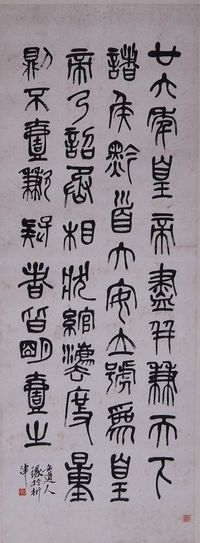 廿六年皇帝盡并兼天下
諸侯黔首大安立號為皇
帝乃詔丞相狀綰灋度量
則不壹歉疑者皆明壹之
道人
於析
津